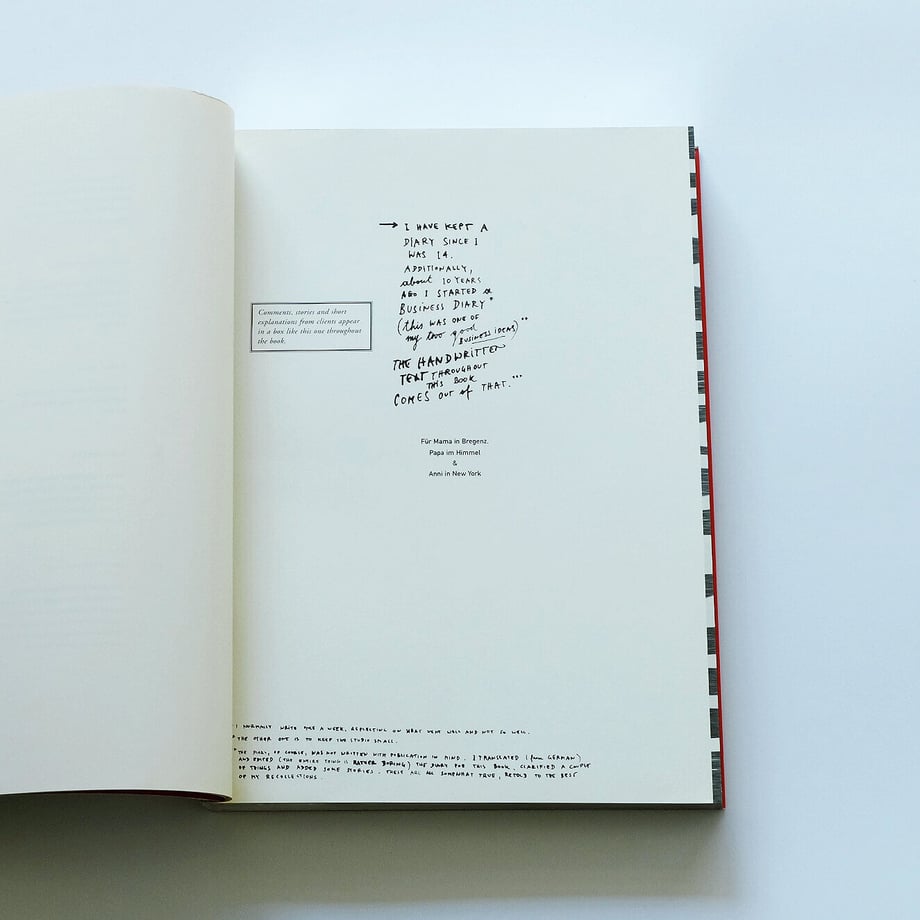 → I HAVE KEPT A
DIARY SINCE I
WAS 14.
ADDITIONALLY,
about 10 YEARS
AGO I STARTED a
BUSINESS DIARY*
(this WAS ONE OF
my two good
BUSINESS IDEAS)**
THE HANDWRITTEN
TEXT THROUGHOUT
THIS BOOK
COMES OUT of THAT.***
Comments, stories and short
explanations from clients appear
in a box like this one throughout
the book.
Für Mama in Bregenz,
Papa im Himmel
&
Anni in New York
I NORMALLY WRITE ONCE A WEEK, REFLECTING ON WHAT WENT WELL AND NOT SO WELL.
THE OTHER ONE IS TO KEEP THE STUDIO SMALL.
THE DIARY, OF COURSE, WAS NOT WRITTEN WITH PUBLICATION IN MIND. I TRANSLATED (from GERMAN)
AND EDITED (THE ENTIRE THING IS RATHER BORING) THE DIARY FOR THIS BOOK, CLARIFIED A COUPLE
OF THINGS AND ADDED SOME STORIES. THESE ARE ALL SOMEWHAT TRUE, RETOLD TO THE BEST
OF MY RECOLLECTIONS.